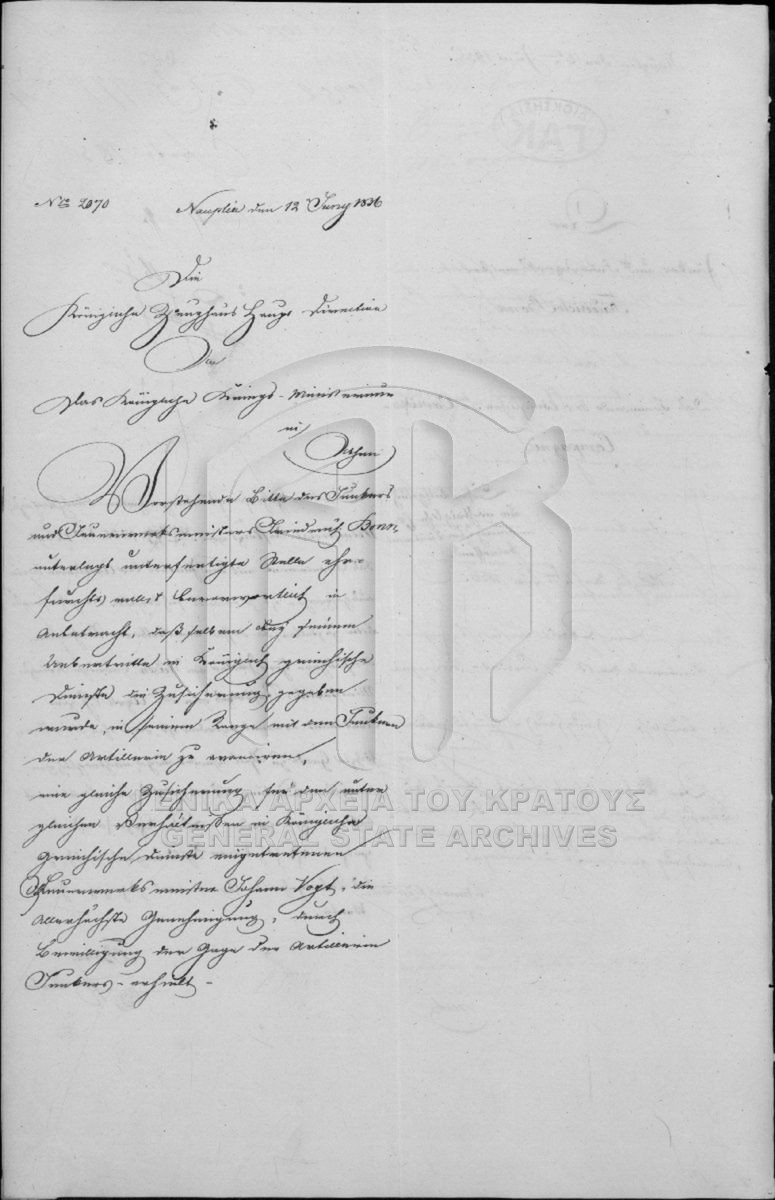 No 2070 Nauplia den 12 Juny 1836
Die
Königliche Zeughaus Haupt Direction
An
Das Königliche Kriegs-Ministerium
in
Athen
Vorstehende Bitte des Junkers
und Feuerwerksmeisters Friedrich Bonn
unterlegt unterfertigte Stelle ehr-
furchtsvollst bevorwortlich in
Anbetracht, daß selbem bey seinem
Uebertritte in Königlich griechische
Dienste die Zusicherung gegeben
wurde, in seinem Range mit den Junkern
der Artillerie zu avanciren,
eine gleiche Zusicherung für den unter
gleichen Verhältnissen in Königliche
Griechische Dienste eingetretenen
Feuerwerksmeister Johann Vogt, die
Allerhöchste Genehmigung, durch
Bewilligung der Gage der Artillerie
Junkers - erhielt -
ΓΑΚ
ΓΕΝΙΚΑ ΑΡΧΕΙΑ ΤΟΥ ΚΡΑΤΟΥΣ
GENERAL STATE ARCHIVES